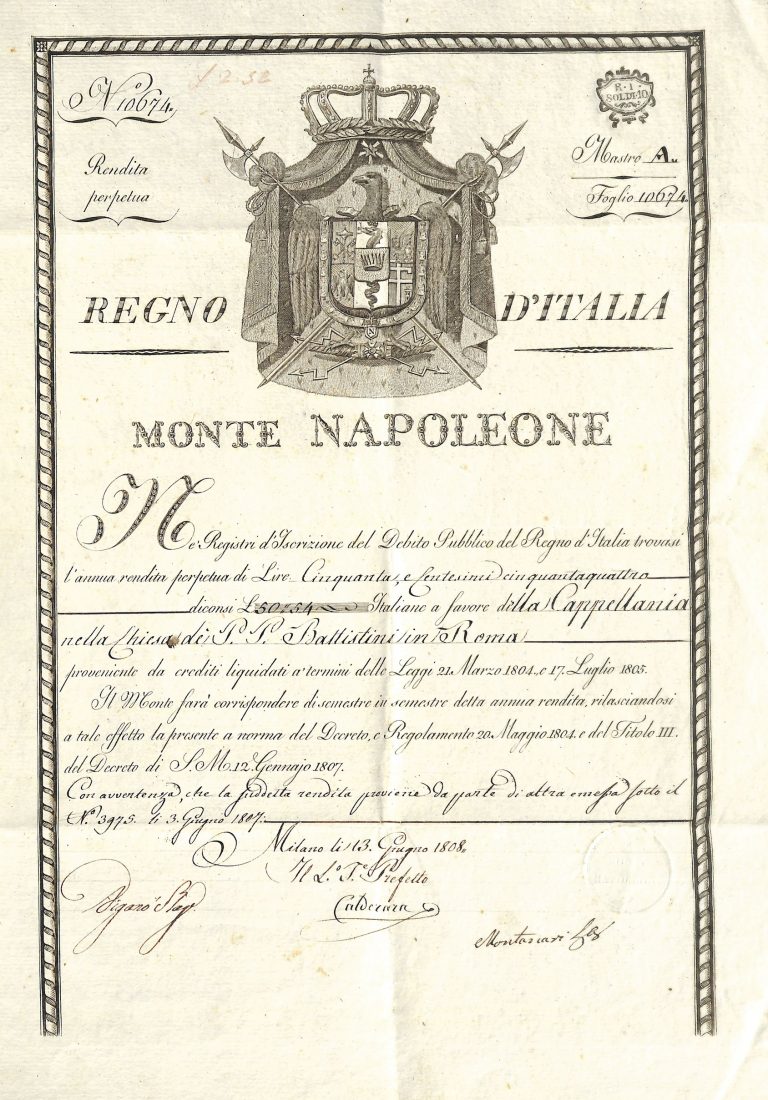 N.º 10674.
£ 2.52
R. I.
SOLDI 10
Rendita
perpetua
Mastro A.
Foglio 10674.
REGNO D'ITALIA
MONTE NAPOLEONE
Ne' Registri d'Iscrizione del Debito Pubblico del Regno d'Italia trovasi
l'annua rendita perpetua di Lire Cinquanta, e Centesimi cinquantaquattro
diconsi L. 50:54 Italiane a favore della Cappellania
nella Chiesa di P. P. Battistini in Roma
proveniente da crediti liquidati a' termini delle Leggi 21. Marzo 1804., e 17. Luglio 1805.
Il Monte farà corrispondere di semestre in semestre detta annua rendita, rilasciandosi
a tale effetto la presente a norma del Decreto, e Regolamento 20. Maggio 1804. e del Titolo III.
del Decreto di S. M. 12. Gennajo 1807.
Con avvertenza, che la suddetta rendita proviene da parte di altra emessa sotto il
N.º 3975. li 3. Giugno 1807.
Milano li 13. Giugno 1808.
Il Prefetto
Calderara